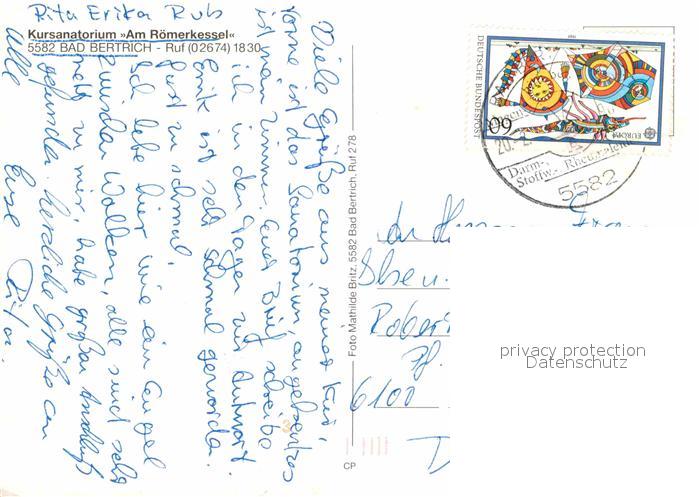 Rita Erika Ruh
Kursanatorium »Am Römerkessel«
5582 BAD BERTRICH - Ruf (02674) 1830
Viele Grüße aus meiner Kur,
vorne ist das Sanatorium, angekreuztes
ist mein Zimmer. Euch Brief schreibe
ich in den Tagen zur Antwort
Erik ist sehr schmal geworden.
fast zu schmal.
Ich lebe hier wie ein Engel
zwischen Wolken, alle sind sehr
nett zu mir, habe großen Anschluß
gefunden. Herzliche Grüße an
alle Eure
Foto Mathilde Britz, 5582 Bad Bertrich, Ruf 278
CP
DEUTSCHE BUNDESPOST
60
EUROPA
20.
Darm-
Stoffw.- Rheuma
5582
An
6100
D
privacy protection
Datenschutz